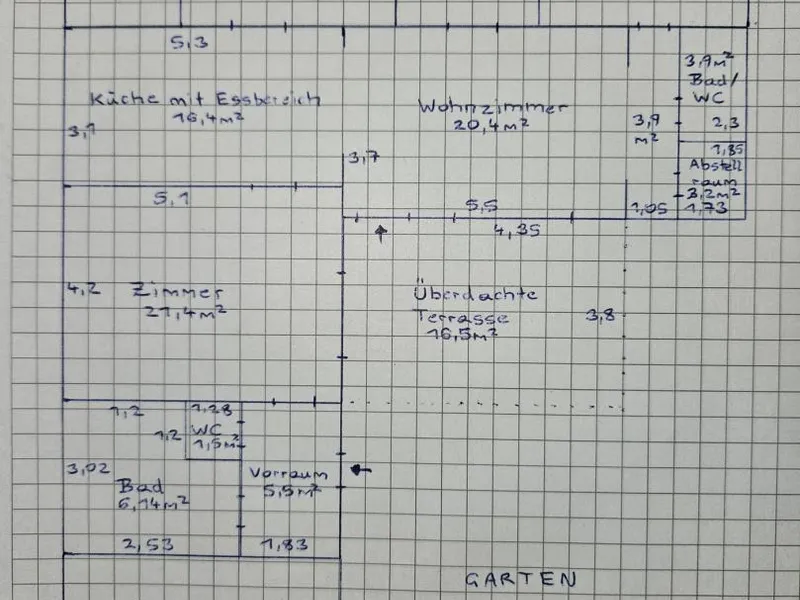 5,3
Küche mit Essbereich
16,4m²
3,1
5,1
Wohnzimmer
20,4m²
3,7
5,5
4,35
3,9
m²
1,05
3,9m²
Bad/
WC
2,3
1,85
Abstell
raum
3,2m²
1,73
4,2
Zimmer
21,4m²
Überdachte
Terrasse
16,5m²
3,8
1,2
1,28
1,2
WC
1,5m²
3,02
Bad
6,14m²
2,53
Vorraum
5,5m²
1,83
GARTEN